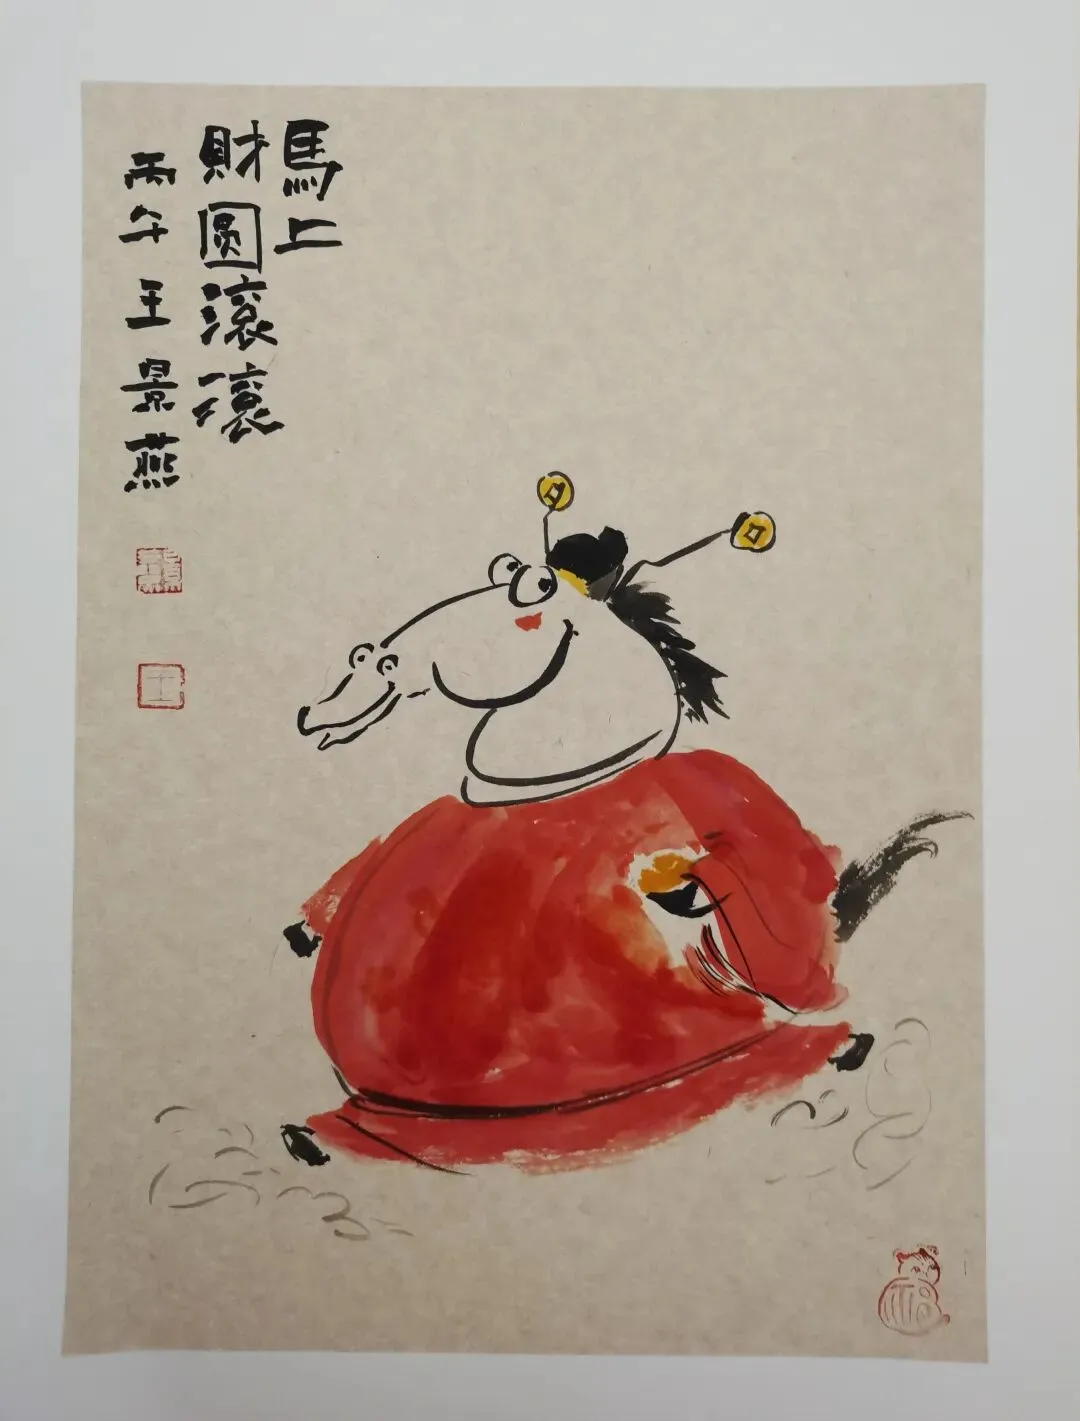 馬上
財圓滾滾
丙午王景燕
王
福